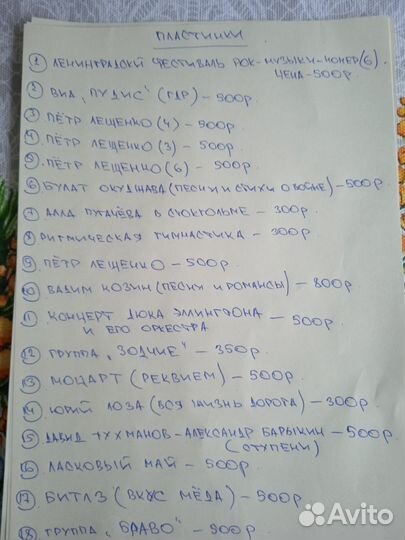 ПЛАСТИНКИ
① ЛЕНИНГРАДСКИЙ ФЕСТИВАЛЬ РОК-МУЗЫКИ-НОМЕР(6).
ЦЕНА-500Р.
② ВИА „ПУДИС“ (ГДР) – 500Р.
③ ПЁТР ЛЕЩЕНКО (4) – 500Р.
④ ПЁТР ЛЕЩЕНКО (3) – 500Р.
⑤ ПЁТР ЛЕЩЕНКО (6) – 500Р.
⑥ БУЛАТ ОКУДЖАВА (ПЕСНИ И СТИХИ О ВОЙНЕ) – 500Р.
⑦ АЛЛА ПУГАЧЁВА В СТОКГОЛЬМЕ – 300Р.
⑧ РИТМИЧЕСКАЯ ГИМНАСТИКА – 300Р.
⑨ ПЁТР ЛЕЩЕНКО – 500Р.
⑩ ВАДИМ КОЗИН (ПЕСНИ И РОМАНСЫ) – 800Р.
⑪ КОНЦЕРТ ДЮКА ЭЛЛИНГТОНА – 500Р.
И ЕГО ОРКЕСТРА
⑫ ГРУППА „ЗОДЧИЕ“ – 350Р.
⑬ МОЦАРТ (РЕКВИЕМ) – 500Р.
⑭ ЮРИЙ ЛОЗА (ВСЯ ЖИЗНЬ ДОРОГА) – 300Р.
⑮ ДАВИД ТУХМАНОВ – АЛЕКСАНДР БАРЫКИН – 500Р.
(СТУПЕНИ)
⑯ ЛАСКОВЫЙ МАЙ – 500Р.
⑰ БИТЛЗ (ВКУС МЁДА) – 500Р.
⑱ ГРУППА „БРАВО“ – 500Р.
Avito